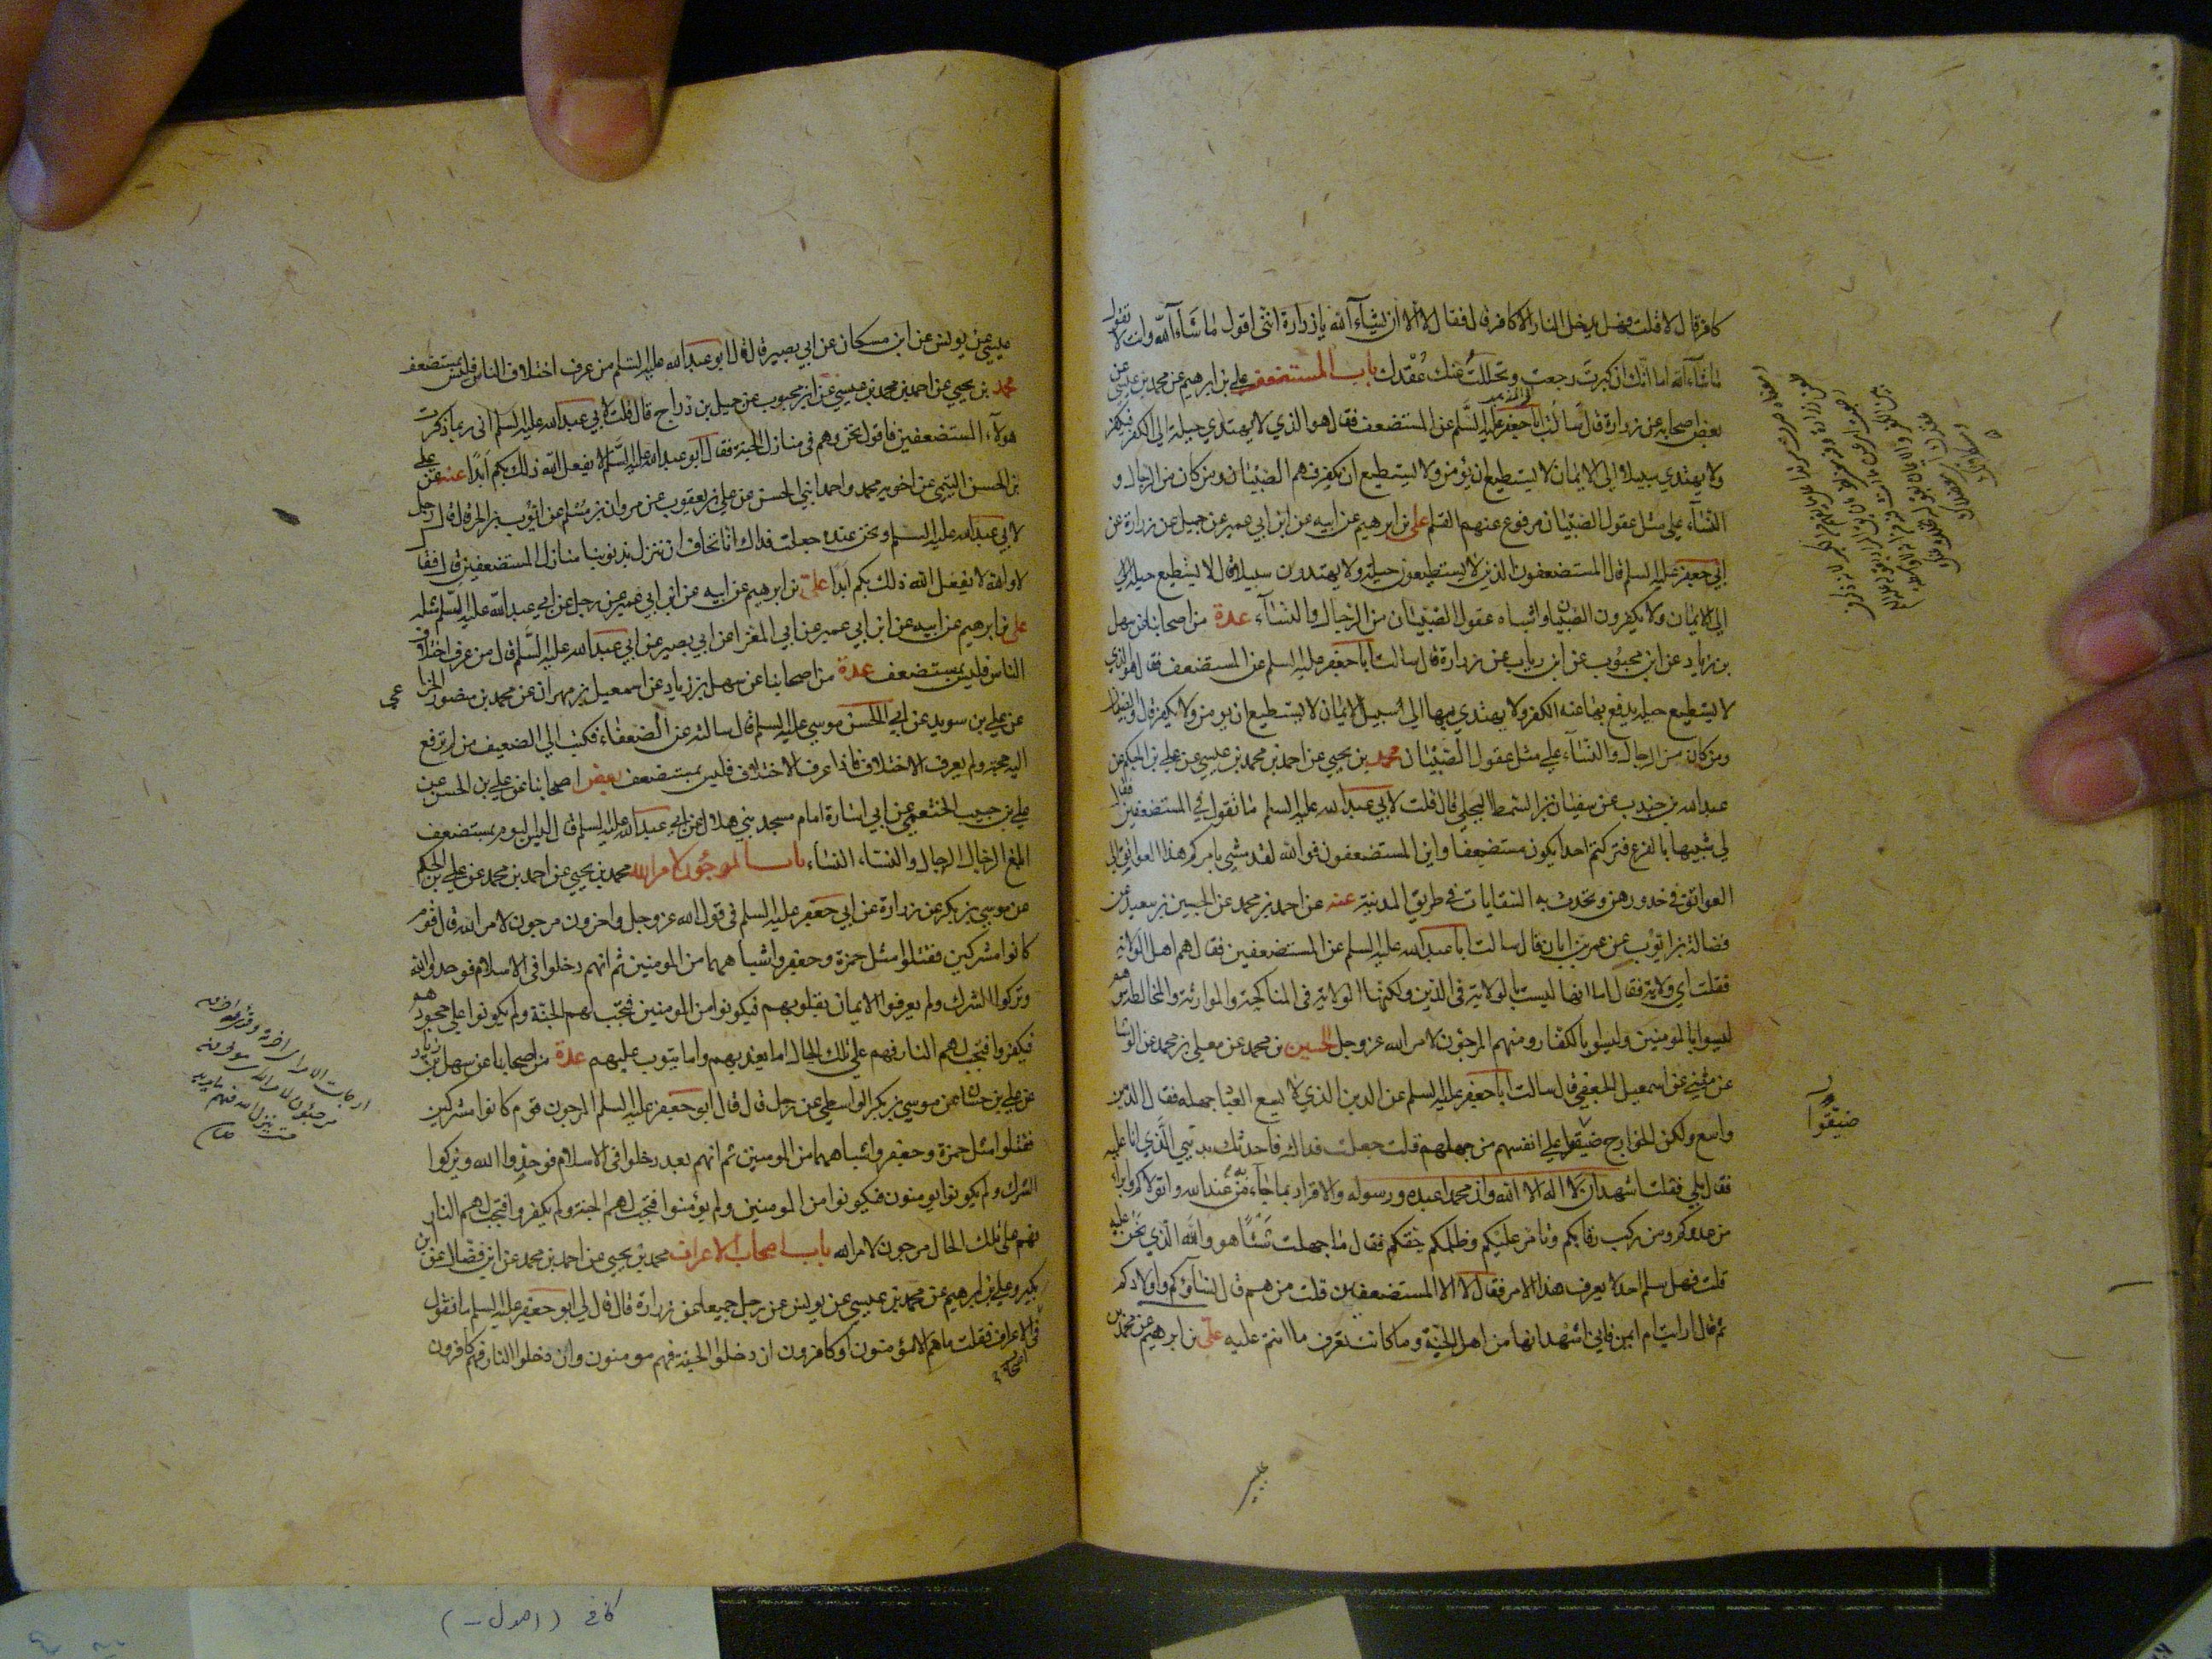 كافر قال لا قلت فهل يدخل النار الا كافر قال فقال لا الا ان يشاء الله يا زرارة انني اقول ما شاء الله وانت لا تقول
ما شاء الله اما انك ان كبرت رجعت وتحللت عنك عقدك باب المستضعف علي بن ابرهيم عن محمد بن عيسى عن
بعض اصحابه عن زرارة قال سالت ابا جعفر عليه السلم عن المستضعف فقال هو الذي لا يهتدي حيلة الى الكفر فيكفر
ولا يهتدي سبيلا الى الايمان لا يستطيع ان يؤمن ولا يستطيع ان يكفر فهم الصبيان ومن كان من الرجال و
النساء على مثل عقول الصبيان مرفوع عنهم القلم علي بن ابرهيم عن ابيه عن ابن ابي عمير عن جميل عن زرارة عن
ابي جعفر عليه السلم قال المستضعفون الذين لا يستطيعون حيلة ولا يهتدون سبيلا قال لا يستطيع حيلة الى
الى الايمان ولا يكفرون الصبيان واشباه عقول الصبيان من الرجال والنساء عدة من اصحابنا عن سهل
بن زياد عن ابن محبوب عن ابن رياب عن زرارة قال سالت ابا جعفر عليه السلم عن المستضعف فقال هو الذي
لا يستطيع حيلة يدفع بها عنه الكفر ولا يهتدي بها الى سبيل الايمان لا يستطيع ان يومن ولا يكفر قال والصبيان
ومن كان من الرجال والنساء على مثل عقول الصبيان محمد بن يحيى عن احمد بن محمد بن عيسى عن علي بن الحكم عن
عبد الله بن جندب عن سفيان بن السمط البجلي قال قلت لابي عبد الله عليه السلم ما تقول في المستضعفين فقال
لي شبيها بالفزع فتركتم احدا يكون مستضعفا واين المستضعفون فوالله لقد مشي بامركم هذا العواتق الى
العواتق في خدورهن وتحدث به السقايات في طريق المدينة عنه عن احمد بن محمد عن الحسين بن سعيد عن
فضالة بن ايوب عن عمر بن ابان قال سالت ابا عبد الله عليه السلم عن المستضعفين فقال هم اهل الولاية
فقلت اي ولاية فقال اما انها ليست بالولاية في الدين ولكنها الولاية في المناكحة والموارثة والمخالطة وهم
ليسوا بالمومنين وليسوا بالكفار ومنهم المرجون لامر الله عز وجل الحسين بن محمد عن معلى بن محمد عن الوشا
عن مثنى عن اسمعيل الجعفي قال سالت ابا جعفر عليه السلم عن الدين الذي لا يسع العباد جهله فقال الدين
واسع ولكن الخوارج ضيقوا على انفسهم من جهلهم قلت جعلت فداك فاحدثك بديني الذي انا عليه
فقال بلى فقلت اشهد ان لا اله الا الله وان محمدا عبده ورسوله والاقرار بما جاء من عند الله واتولاكم وابرا
من عدوكم ومن ركب رقابكم وتامر عليكم وظلمكم حقكم فقال ما جهلت شيئا هو والله الذي نحن عليه
قلت فهل سلم احد لا يعرف هذا الامر فقال لا الا المستضعفين قلت من هم قال نساؤكم واولادكم
ثم قال ارايت ام ايمن فاني اشهد انها من اهل الجنة وما كانت تعرف ما انتم عليه علي بن ابرهيم عن محمد بن
ضيقوا
عيسى عن يونس عن ابن مسكان عن ابي بصير قال قال ابو عبد الله عليه السلم من عرف اختلاف الناس فليس بمستضعف
محمد بن يحيى عن احمد بن محمد بن عيسى عن ابن محبوب عن جميل بن دراج قال قلت لابي عبد الله عليه السلم اني ربما ذكرت
هولاء المستضعفين فاقول نحن وهم في منازل الجنة فقال ابو عبد الله عليه السلم لا يفعل الله ذلك بكم ابدا عنه عن علي
بن الحسن التيمي عن اخويه محمد واحمد ابني الحسن عن علي بن يعقوب عن مروان بن مسلم عن ايوب بن الحر قال قال رجل
لابي عبد الله عليه السلم ونحن عنده جعلت فداك انا نخاف ان ننزل بذنوبنا منازل المستضعفين قال فقال
لا والله لا يفعل الله ذلك بكم ابدا علي بن ابرهيم عن ابيه عن ابن ابي عمير عن رجل عن ابي عبد الله عليه السلم مثله
علي بن ابرهيم عن ابيه عن ابن ابي عمير عن ابي المغرا عن ابي بصير عن ابي عبد الله عليه السلم قال من عرف اختلاف
الناس فليس بمستضعف عدة من اصحابنا عن سهل بن زياد عن اسمعيل بن مهران عن محمد بن منصور الخزا عى
عن علي بن سويد عن ابي الحسن موسى عليه السلم قال سالته عن الضعفاء فكتب الي الضعيف من لم ترفع
اليه حجة ولم يعرف الاختلاف فاذا عرف الاختلاف فليس بمستضعف بعض اصحابنا عن علي بن الحسن عن
علي بن حبيب الخثعمي عن ابي سارة امام مسجد بني هلال عن ابي عبد الله عليه السلم قال ليس اليوم بمستضعف
ابلغ الرجال الرجال والنساء النساء باب المرجون لامر الله محمد بن يحيى عن احمد بن محمد عن علي بن الحكم
عن موسى بن بكر عن زرارة عن ابي جعفر عليه السلم في قول الله عز وجل واخرون مرجون لامر الله قال قوم
كانوا مشركين فقتلوا مثل حمزة وجعفر واشباههما من المومنين ثم انهم دخلوا في الاسلام فوحدوا الله
وتركوا الشرك ولم يعرفوا الايمان بقلوبهم فيكونوا من المومنين فتجب لهم الجنة ولم يكونوا على جحودهم
فيكفروا فتجب لهم النار فهم على تلك الحال اما يعذبهم واما يتوب عليهم عدة من اصحابنا عن سهل بن زياد
عن علي بن حسان عن موسى بن بكر الواسطي عن رجل قال قال ابو جعفر عليه السلم المرجون قوم كانوا مشركين
فقتلوا مثل حمزة وجعفر واشباههما من المومنين ثم انهم بعد دخلوا في الاسلام فوحدوا الله وتركوا
الشرك ولم يكونوا يومنون فيكونوا من المومنين ولم يؤمنوا فتجب لهم الجنة ولم يكفروا فتجب لهم النار
فهم على تلك الحال مرجون لامر الله باب اصحاب الاعراف محمد بن يحيى عن احمد بن محمد عن ابن فضال عن ابن
بكير وعلي بن ابرهيم عن محمد بن عيسى عن يونس عن رجل جميعا عن زرارة قال قال لي ابو جعفر عليه السلم ما تقول
في الاعراف فقلت ما هم الا مؤمنون او كافرون ان دخلوا الجنة فهم مومنون وان دخلوا النار فهم كافرون
اصحاب
كافي (اصول -)